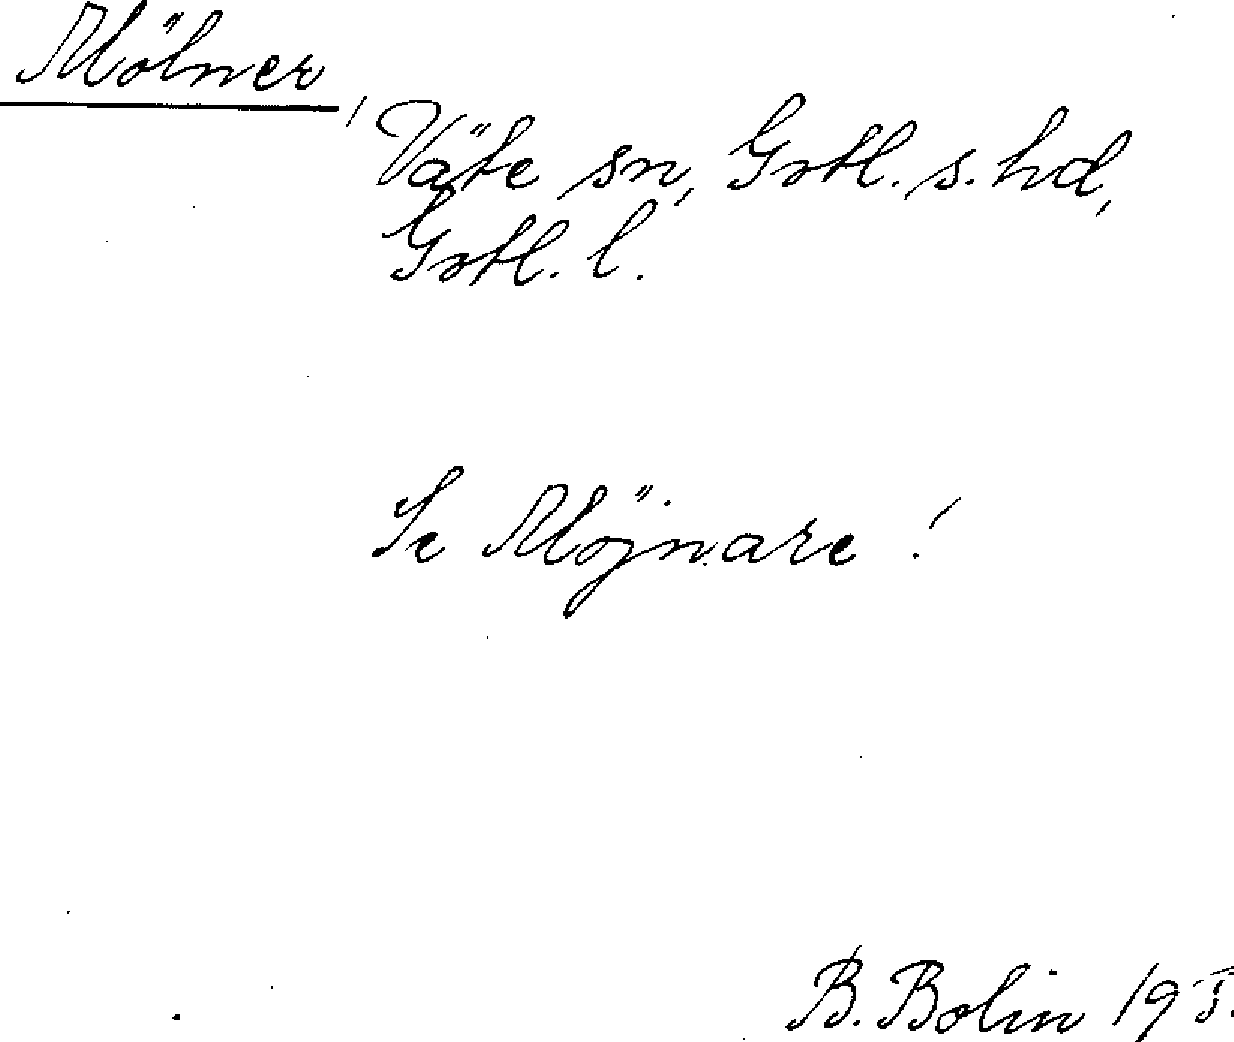 Mölner,
Väte sn, Gotl. s. hd,
Gotl. l.
Se Möjnare!
B. Bolin